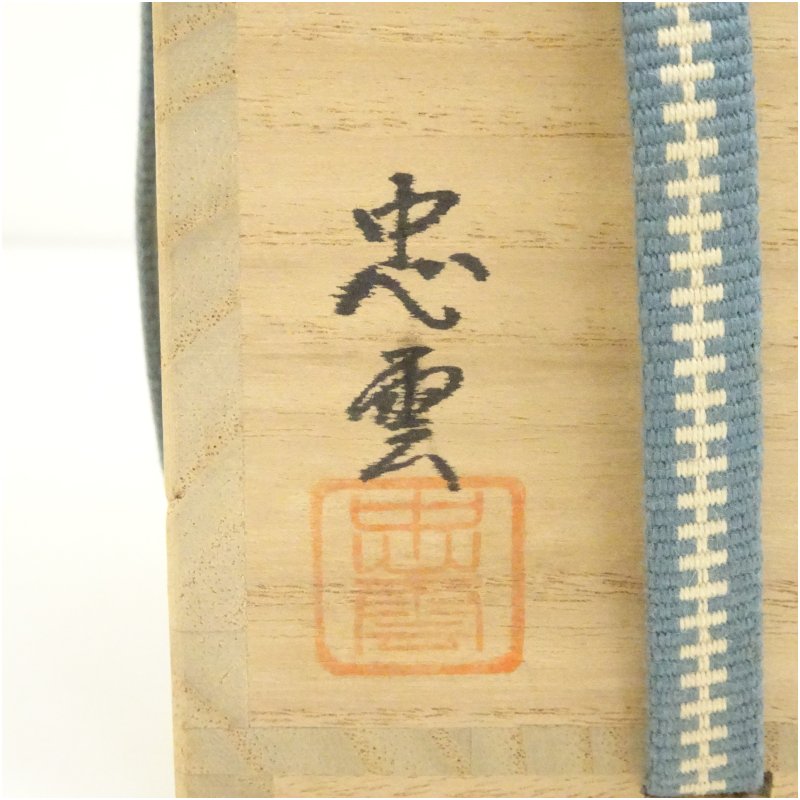 忠雲
忠雲